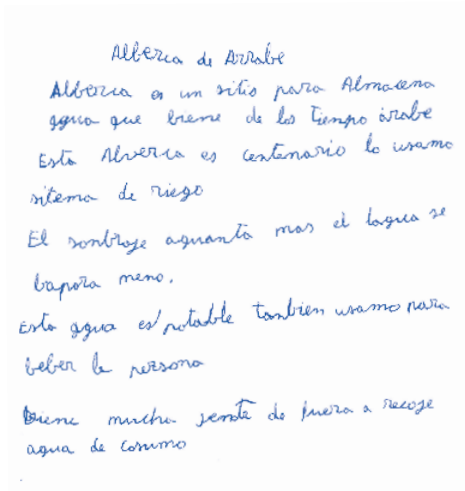 Alberca de Arrabe
Alberca es un sitio para Almacena
agua que biene de los tiempo árabe
Esta Alverca es centenario lo usamo
sitema de riego
El sonbroje aguanta mas el lagua se
bapora meno.
Esta agua es potable tanbien usamo para
beber la persona
Biene mucha jente de fuera a recoje
agua de consumo